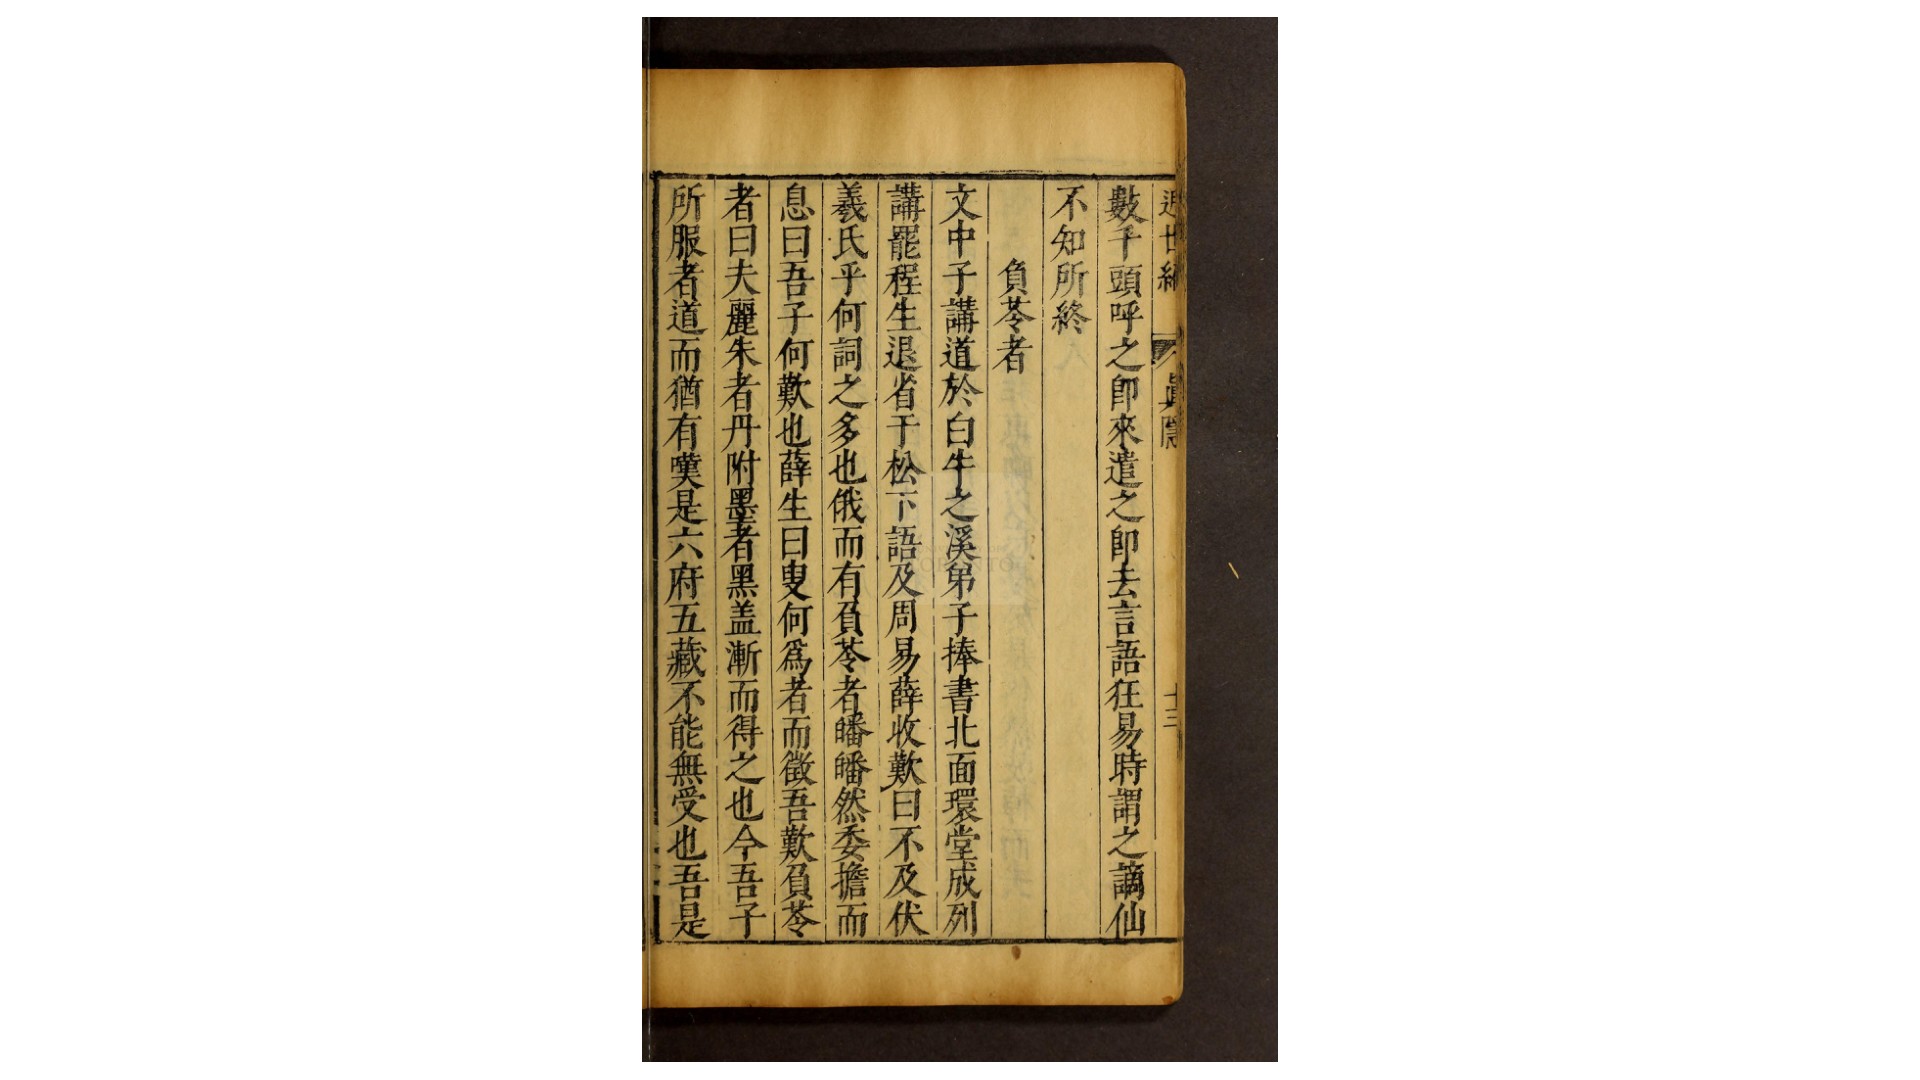 數千頭呼之卽來遣之卽去言語狂易時謂之謫仙
不知所終
負苓者
文中子講道於白牛之溪弟子捧書北面環堂成列
講罷程生退省于松下語及周易薛收歎曰不及伏
羲氏乎何詞之多也俄而有負苓者皤皤然委擔而
息曰吾子何歎也薛生曰叟何爲者而徵吾歎負苓
者曰夫麗朱者丹附墨者黑盖漸而得之也今吾子
所服者道而猶有嘆是六府五藏不能無受也吾是